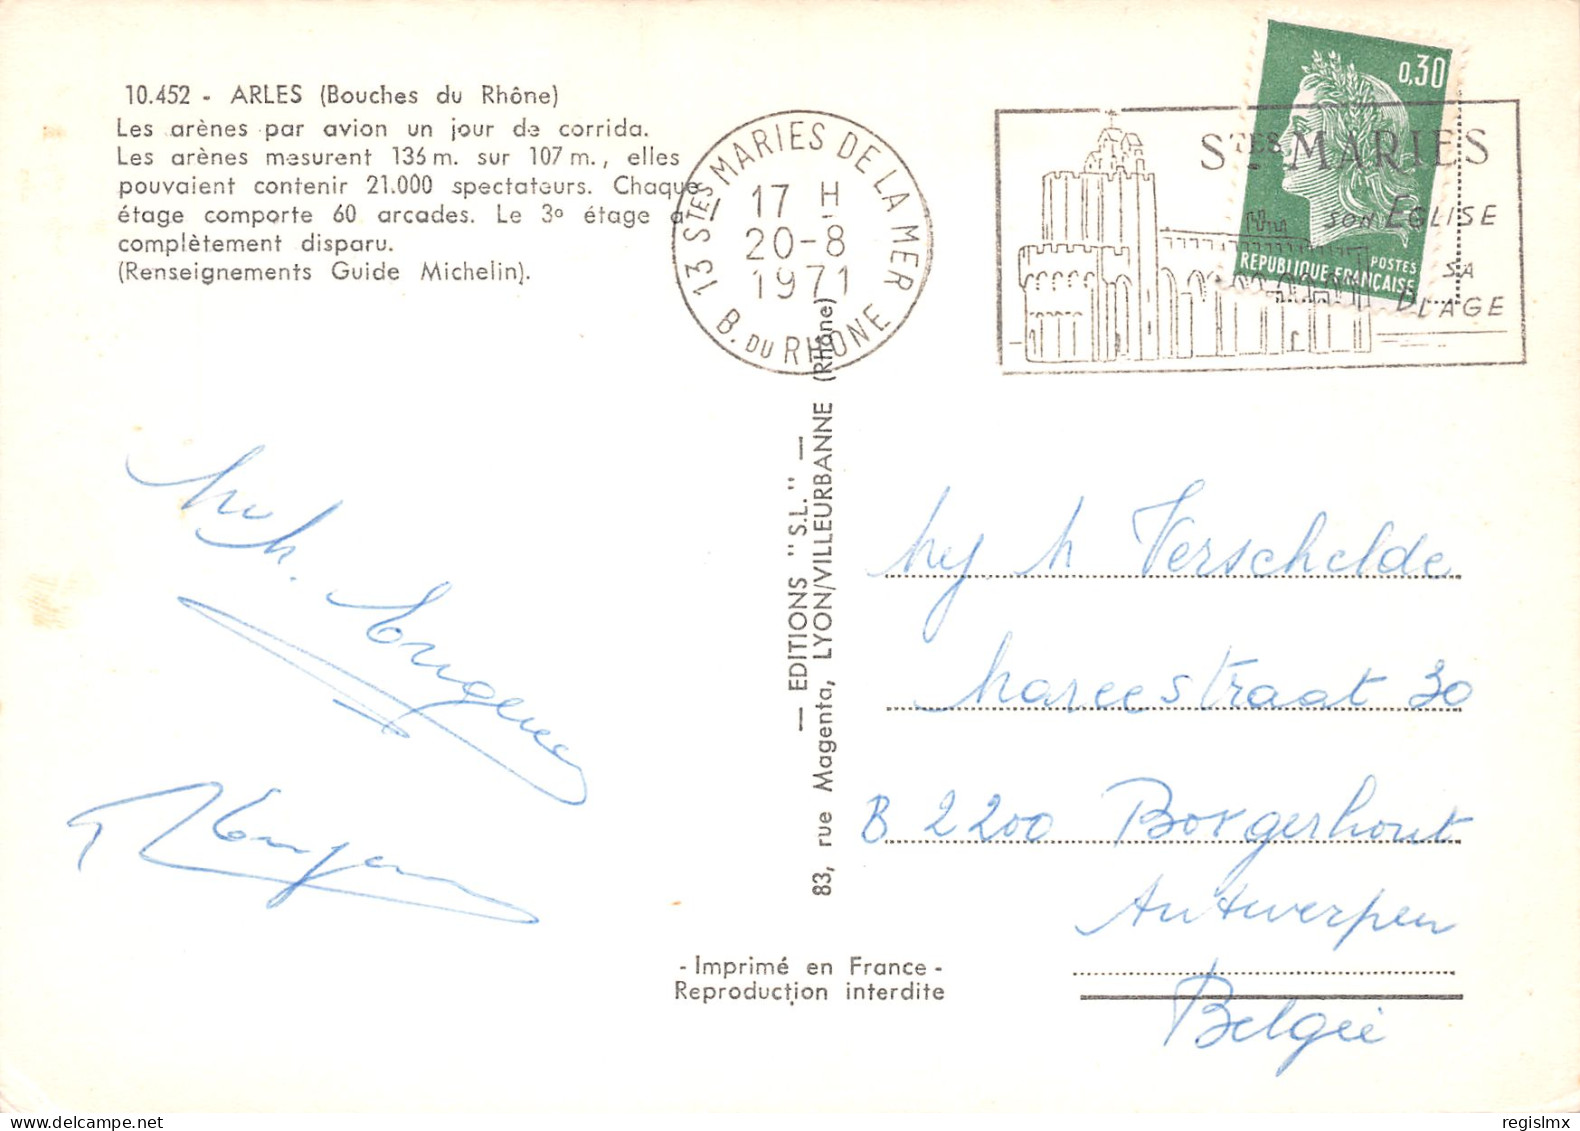 10.452 - ARLES (Bouches du Rhône)
Les arènes par avion un jour de corrida.
Les arènes mesurent 136 m. sur 107 m., elles
pouvaient contenir 21.000 spectateurs. Chaque
étage comporte 60 arcades. Le 3º étage a
complètement disparu.
(Renseignements Guide Michelin).
13 STES MARIES DE LA MER
17 H
20-8
1971
B. DU RHONE
STES MARIES
SON EGLISE
SA
PLAGE
0,30
POSTES
REPUBLIQUE FRANÇAISE
— EDITIONS "S.L." —
83, rue Magenta, LYON/VILLEURBANNE (Rhône)
Verschelde
Mareestraat 30
B 2200 Borgerhout
Antwerpen
België
- Imprimé en France -
Reproduction interdite
regislmx